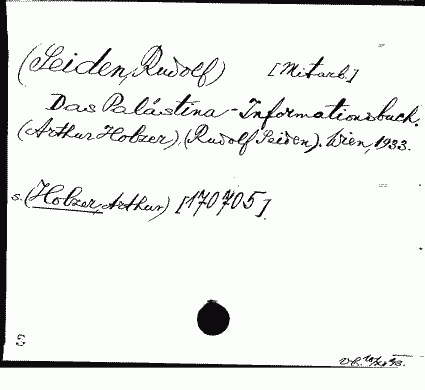 (Seiden, Rudolf) [Mitarb.]
Das Palästina-Informationsbuch.
(Arthur Holzer), (Rudolf Seiden). Wien, 1933.
s. (Holzer, Arthur) [170705].
S